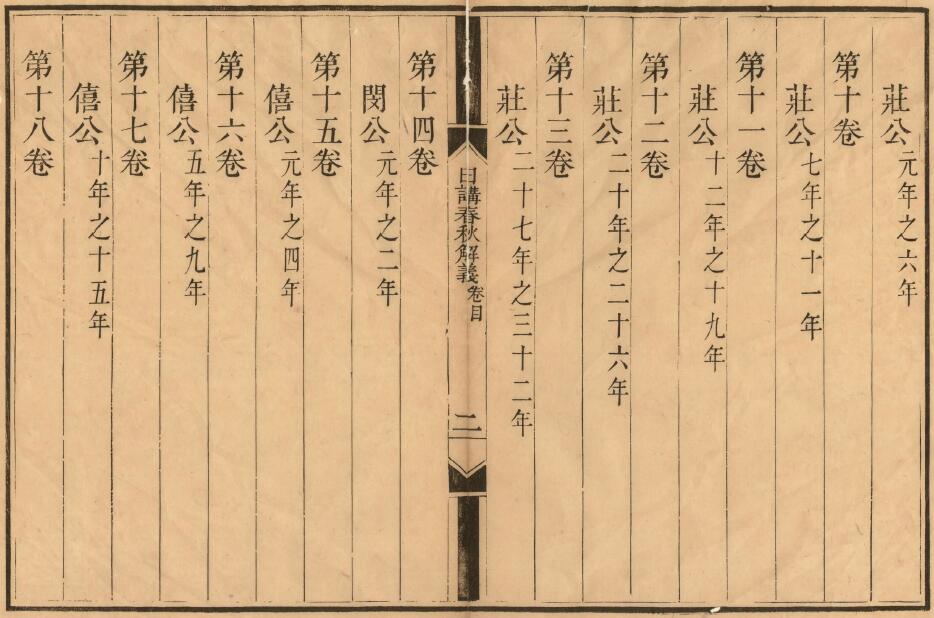 莊公元年之六年
第十卷
莊公七年之十一年
第十一卷
莊公十二年之十九年
第十二卷
莊公二十年之二十六年
第十三卷
莊公二十七年之三十二年
日講春秋解義卷目
二
第十四卷
閔公元年之二年
第十五卷
僖公元年之四年
第十六卷
僖公五年之九年
第十七卷
僖公十年之十五年
第十八卷